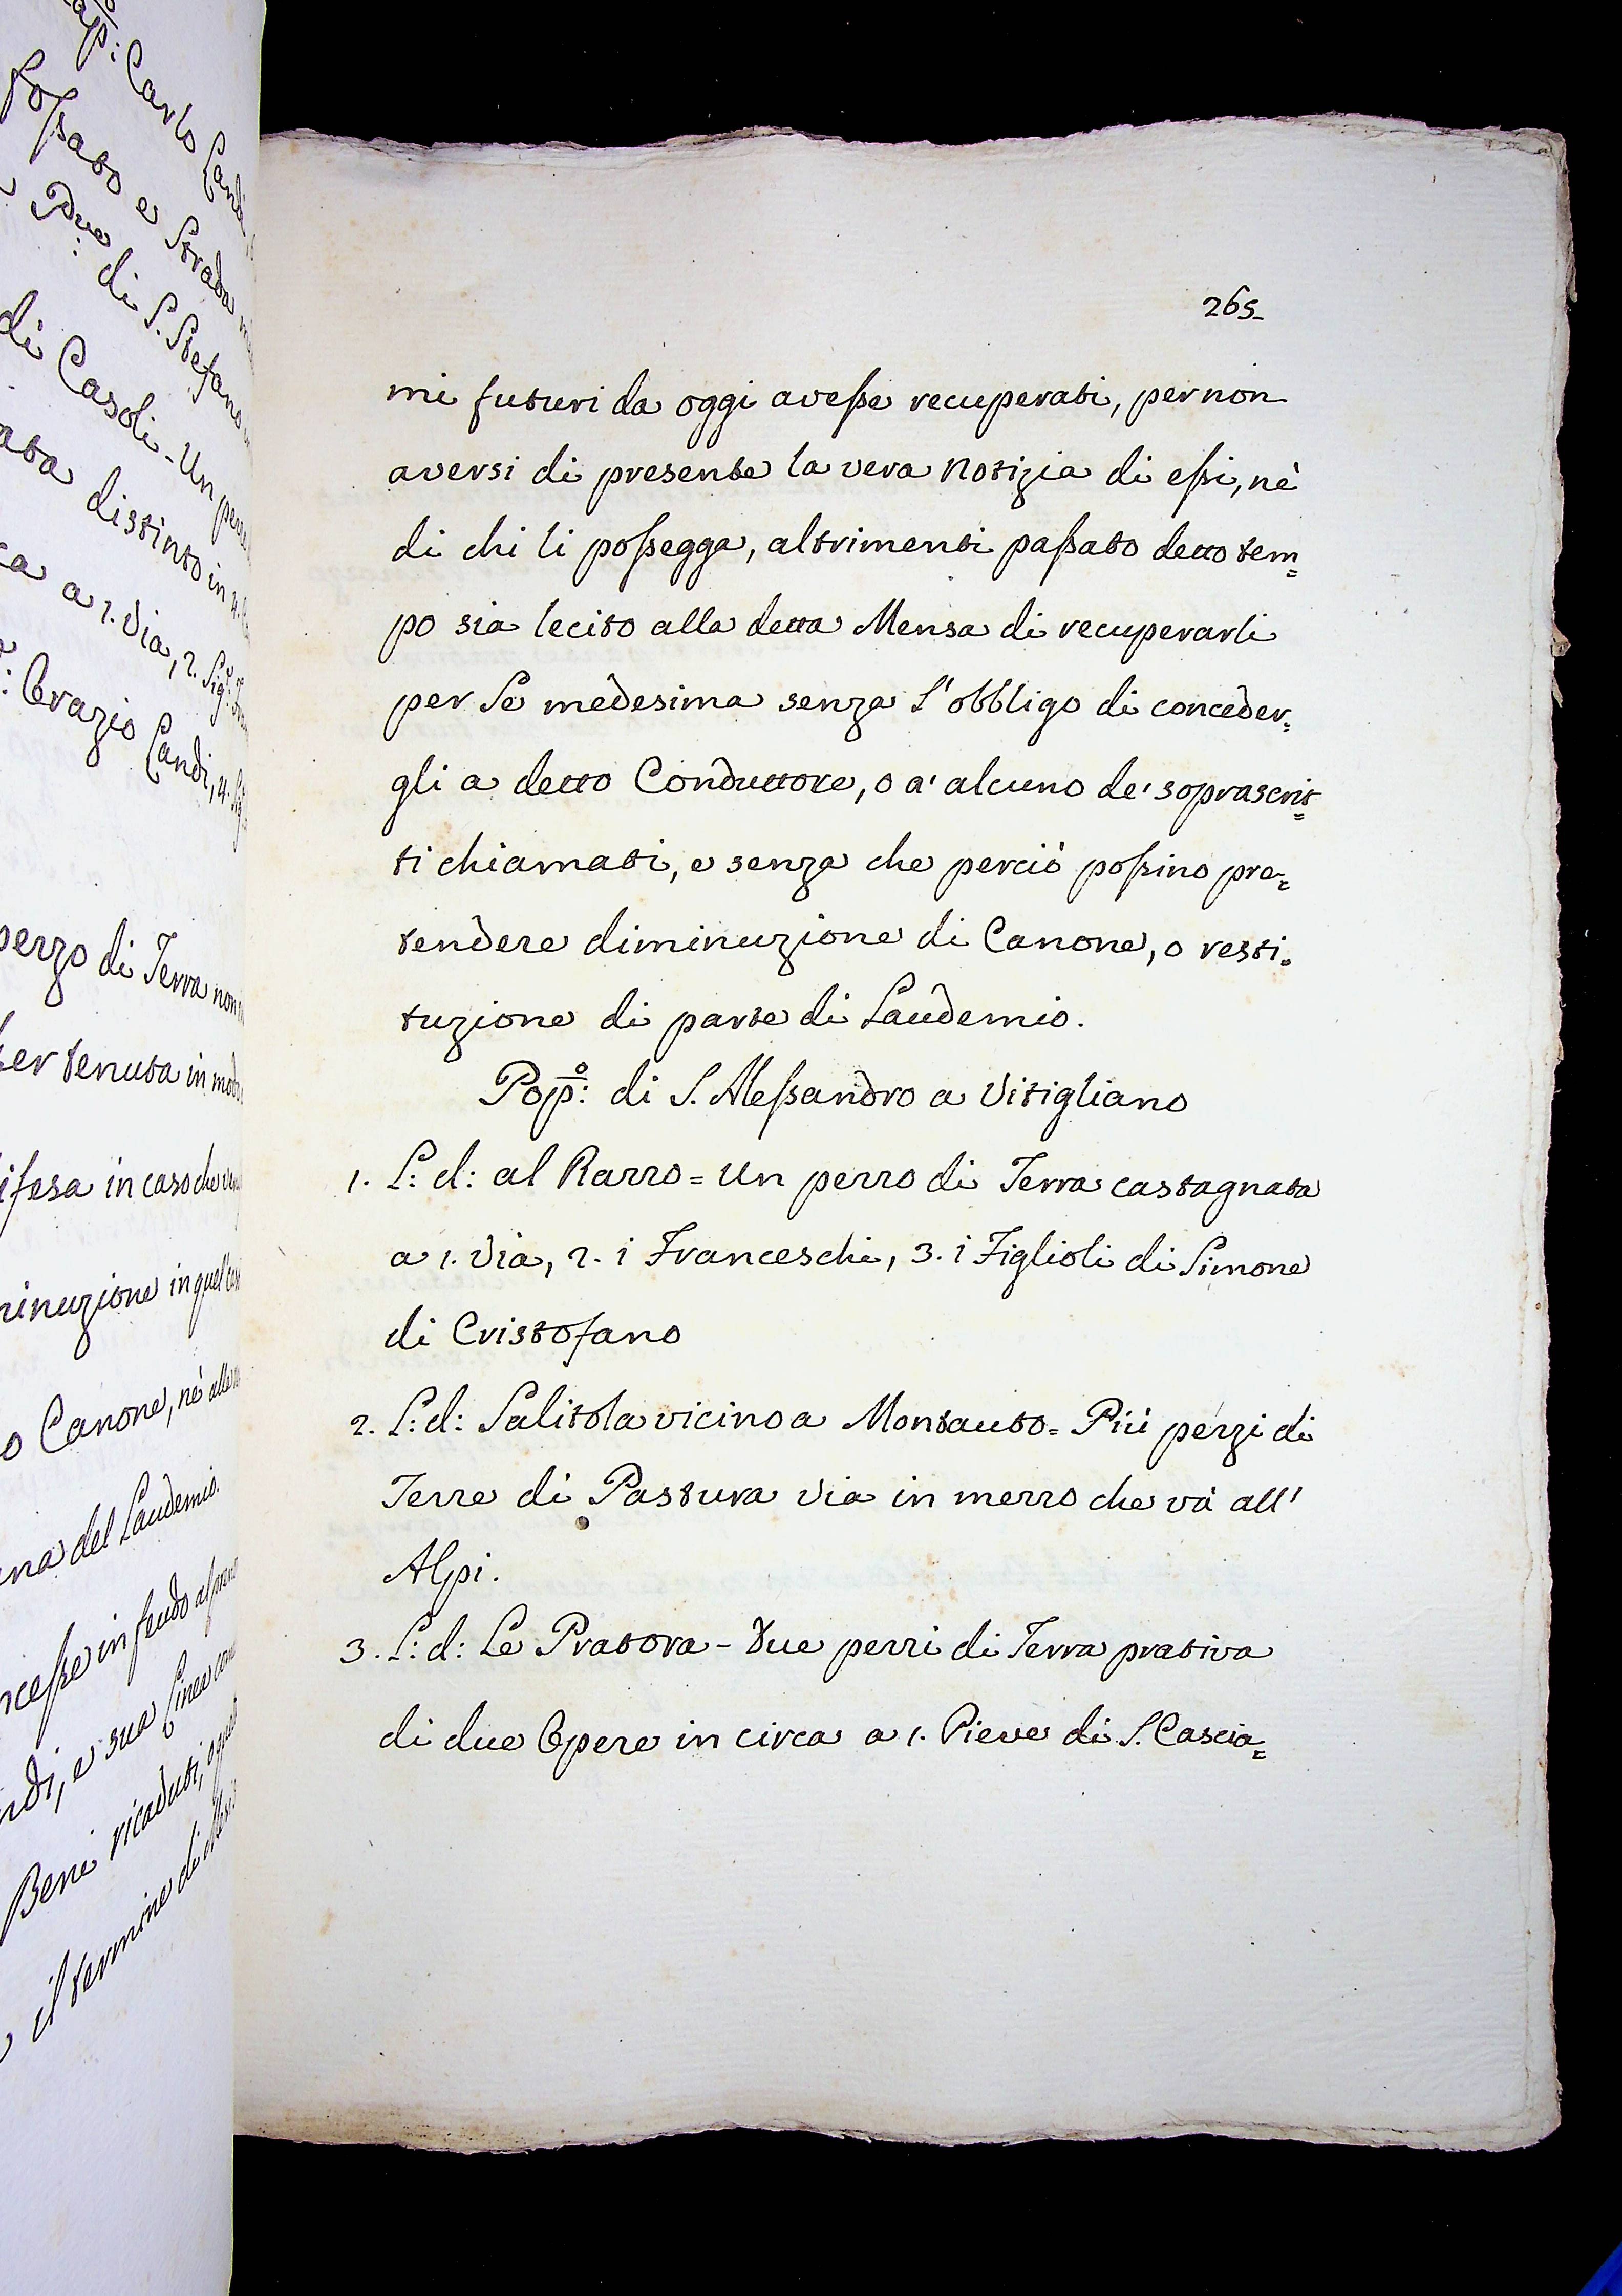 265_
mi futuri da oggi avesse recuperati, per non
aversi di presente la vera notizia di essi, nè
di chi li possegga, altrimenti passato detto tem=
po sia lecito alla detta Mensa di recuperarli
per Se medesima senza l'obbligo di conceder=
gli a detto Conduttore, o a' alcuno de' soprascrit=
ti chiamati, e senza che perciò possino pre=
tendere diminuzione di Canone, o resti=
tuzione di parte di Laudemio.
Pop:º di S. Alessandro a Vitigliano
1. L: d: al Razzo = Un pezzo di Terra castagnata
a 1. Via, 2. i Franceschi, 3. i Figlioli di Simone
di Cristofano
2. L: d: Salitola vicino a Montauto = Più pezzi di
Terre di Pastura via in mezzo che và all'
Alpi.
3. L: d: Le Pratora - Due pezzi di Terra prativa
di due Opere in circa a 1. Pieve di S. Cascia=
Carlo Landi
fossato e Strada
Pue di S. Stefano
di Casoli - Un
distinto in
a 1. Via, 2.
Orazio Landi, 4.
pezzo di Terra non
tenuta in
in caso che
in quel
o Canone, nè
del Laudemio.
in feudo
e sua Linea
Beni ricaduti,
il termine di